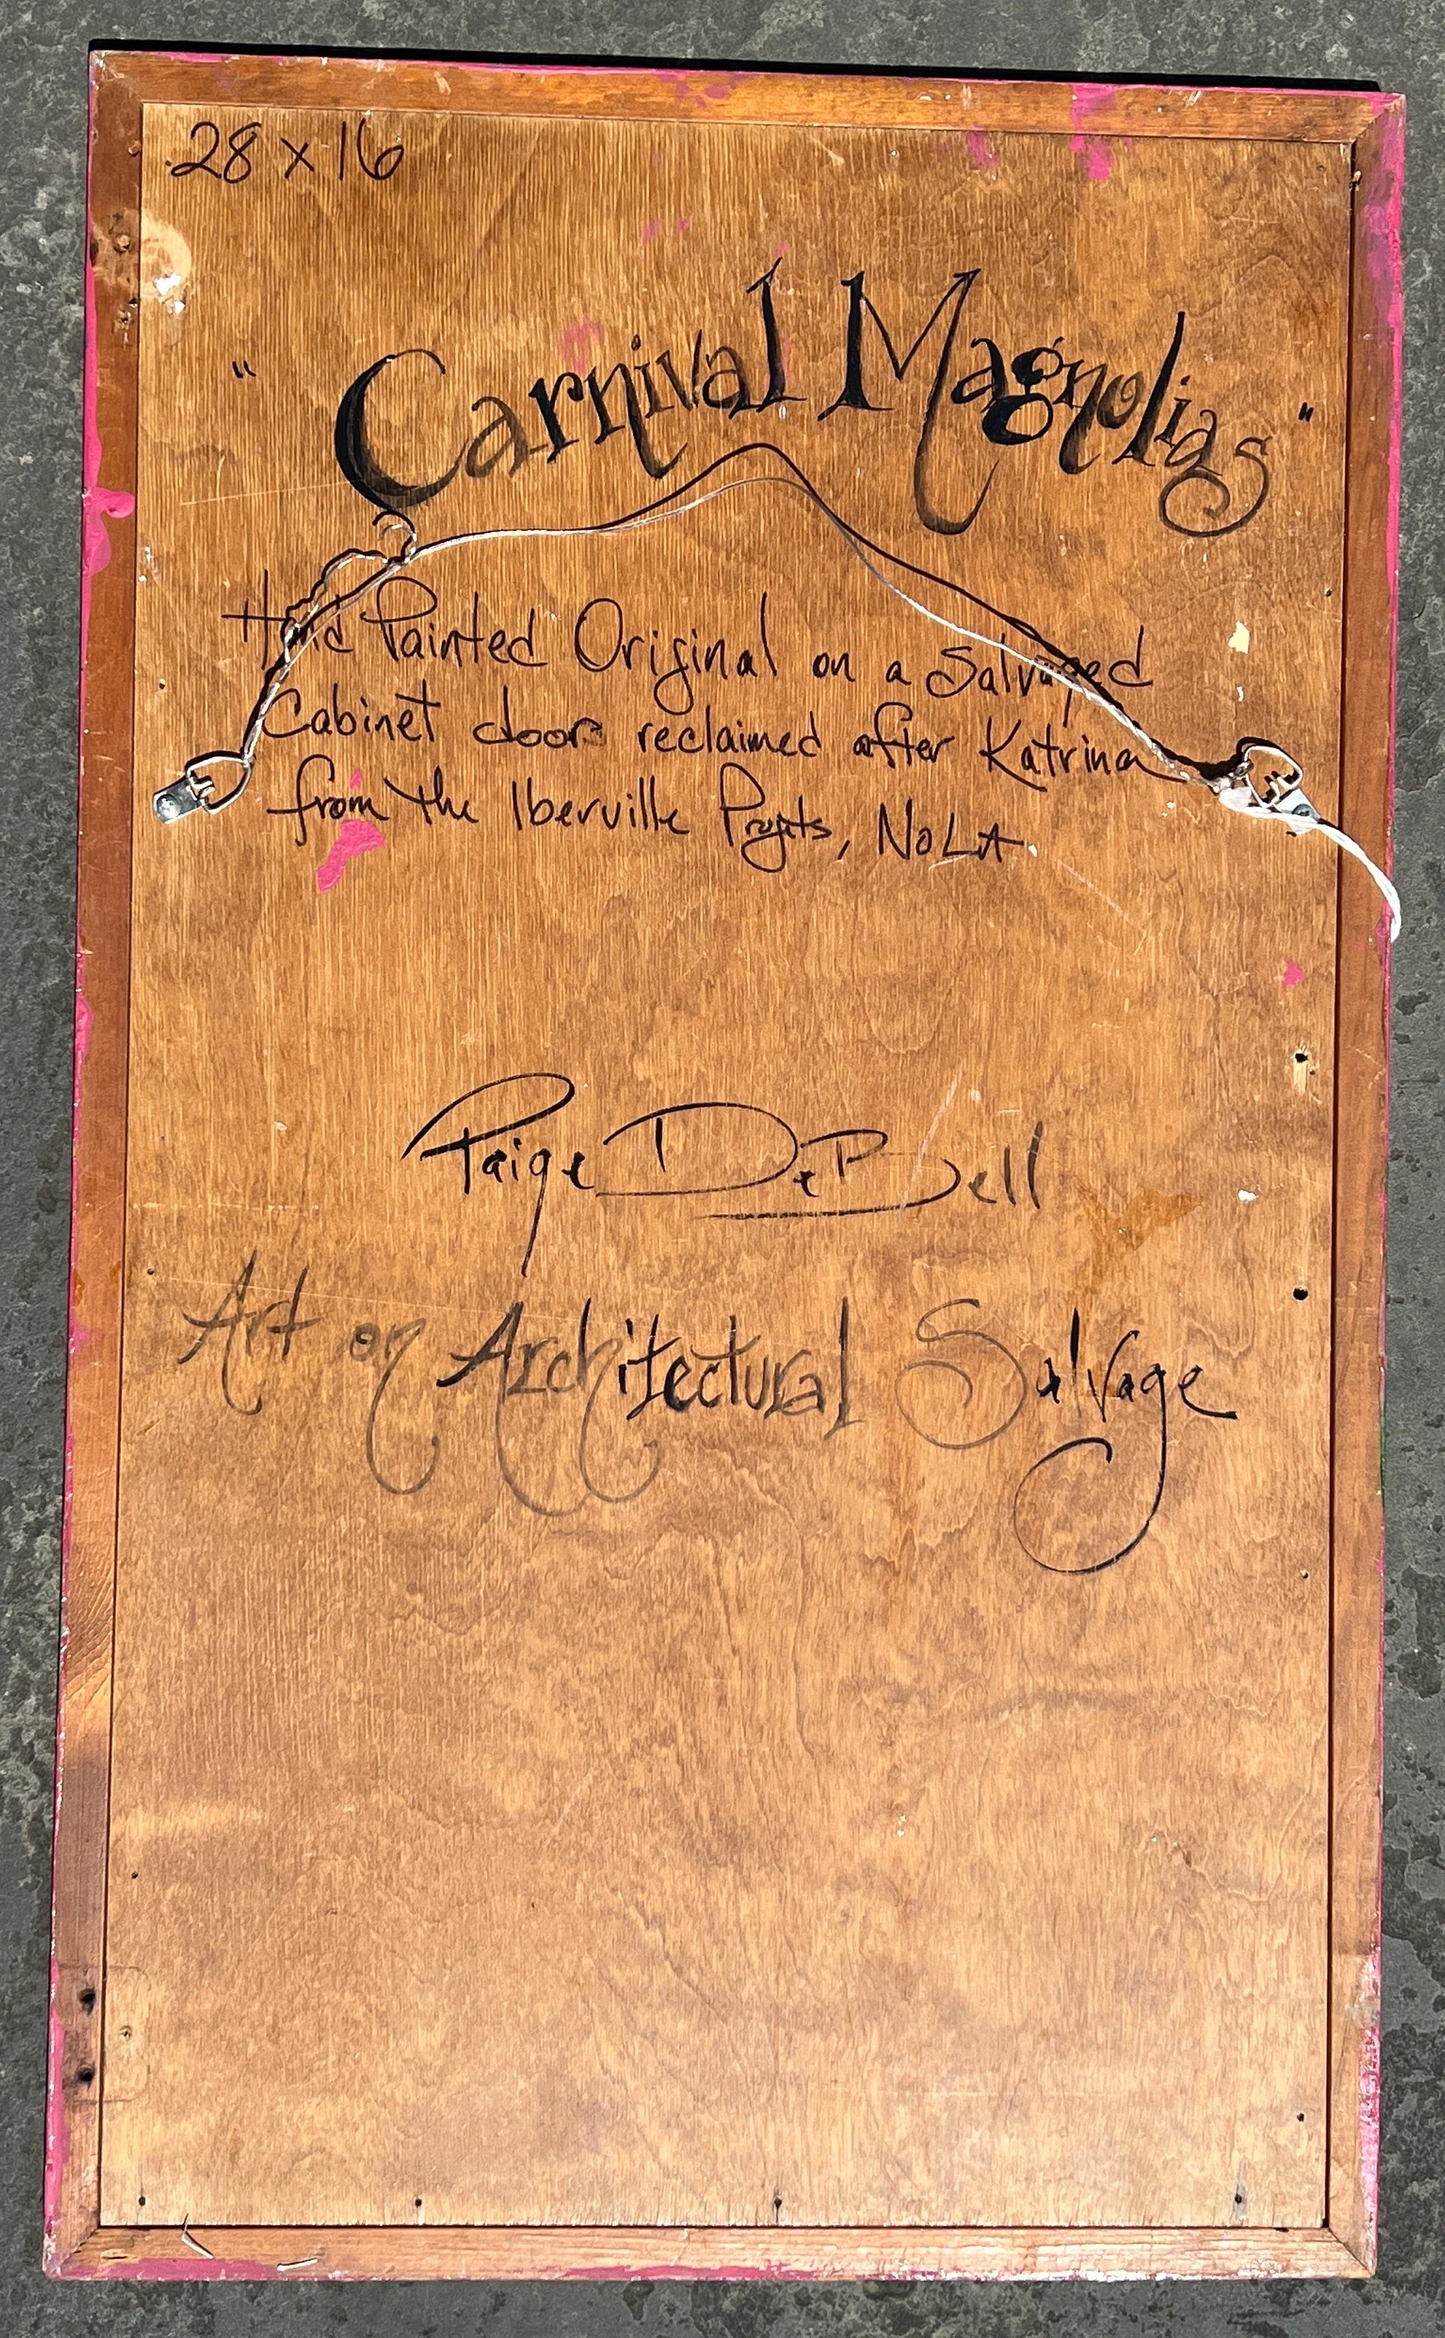 28 x 16
"Carnival Magnolias"
Hand Painted Original on a Salvaged
Cabinet door reclaimed after Katrina
from the Iberville Projects, NOLA
Paige DeBell
Art on Architectural Salvage